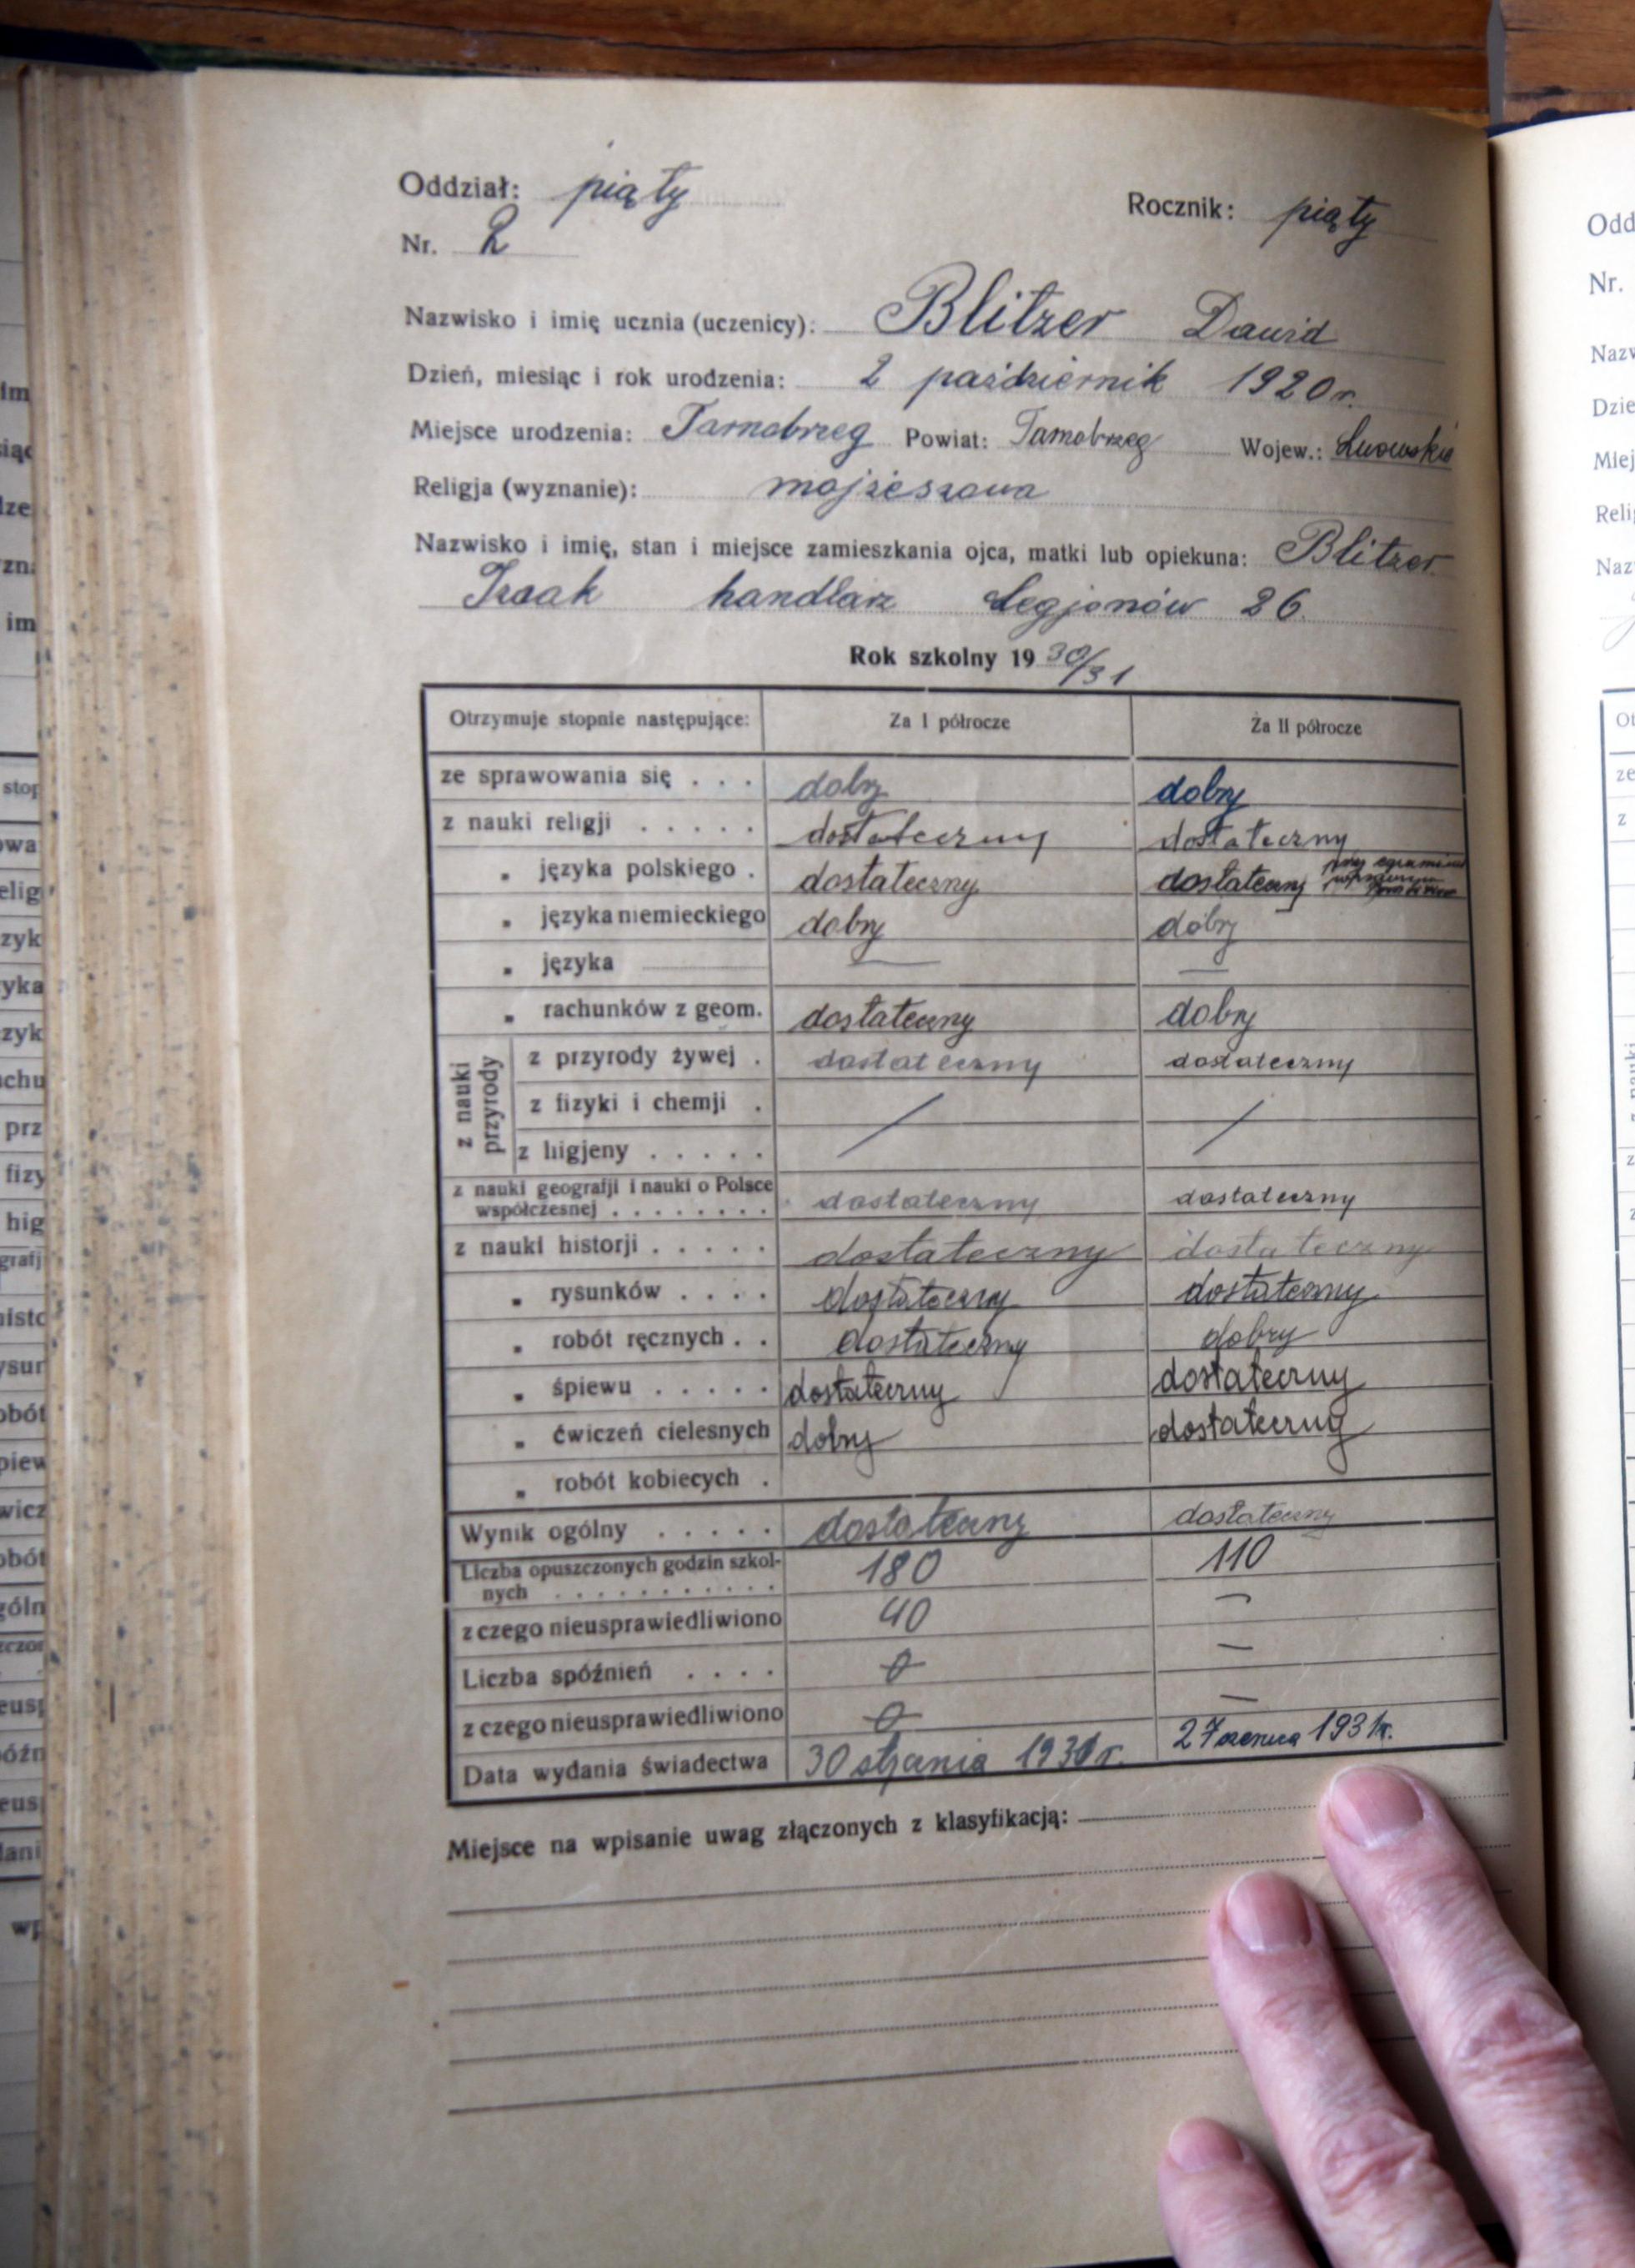 Oddział: piąty Rocznik: piąty
Nr. 2
Nazwisko i imię ucznia (uczenicy): Blitzer Dawid
Dzień, miesiąc i rok urodzenia: 2 październik 1920 r.
Miejsce urodzenia: Tarnobrzeg Powiat: Tarnobrzeg Wojew.: Lwowskie
Religja (wyznanie): mojżeszowa
Nazwisko i imię, stan i miejsce zamieszkania ojca, matki lub opiekuna: Blitzer
Izaak handlarz Legjonów 26.
Rok szkolny 1930/31
Otrzymuje stopnie następujące: Za I półrocze Za II półrocze
ze sprawowania się . . . dobry dobry
z nauki religji . . . . . dostateczny dostateczny
„ języka polskiego . dostateczny dostateczny przy egzaminie
„ języka niemieckiego dobry dobry
„ języka — —
„ rachunków z geom. dostateczny dobry
z nauki przyrody
z przyrody żywej . dostateczny dostateczny
z fizyki i chemji . /  /
z higjeny . . . . .
z nauki geografji i nauki o Polsce
współczesnej . . . . . . . . dostateczny dostateczny
z nauki historji . . . . . dostateczny dostateczny
„ rysunków . . . . dostateczny dostateczny
„ robót ręcznych . . dostateczny dobry
„ śpiewu . . . . . dostateczny dostateczny
„ ćwiczeń cielesnych dobry dostateczny
„ robót kobiecych .
Wynik ogólny . . . . . dostateczny dostateczny
Liczba opuszczonych godzin szkol-
nych . . . . . . . . . . . 180 110
z czego nieusprawiedliwiono 40 —
Liczba spóźnień . . . . 0 —
z czego nieusprawiedliwiono 0 —
Data wydania świadectwa 30 stycznia 1931 r. 27 czerwca 1931 r.
Miejsce na wpisanie uwag złączonych z klasyfikacją: